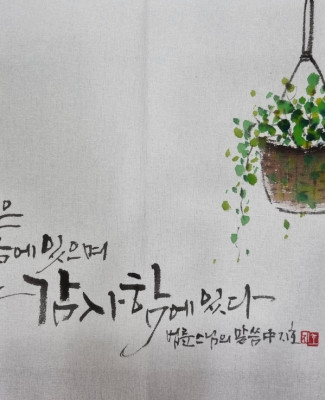 은
함에 있으며
감사함에 있다
법륜스님의 말씀 中